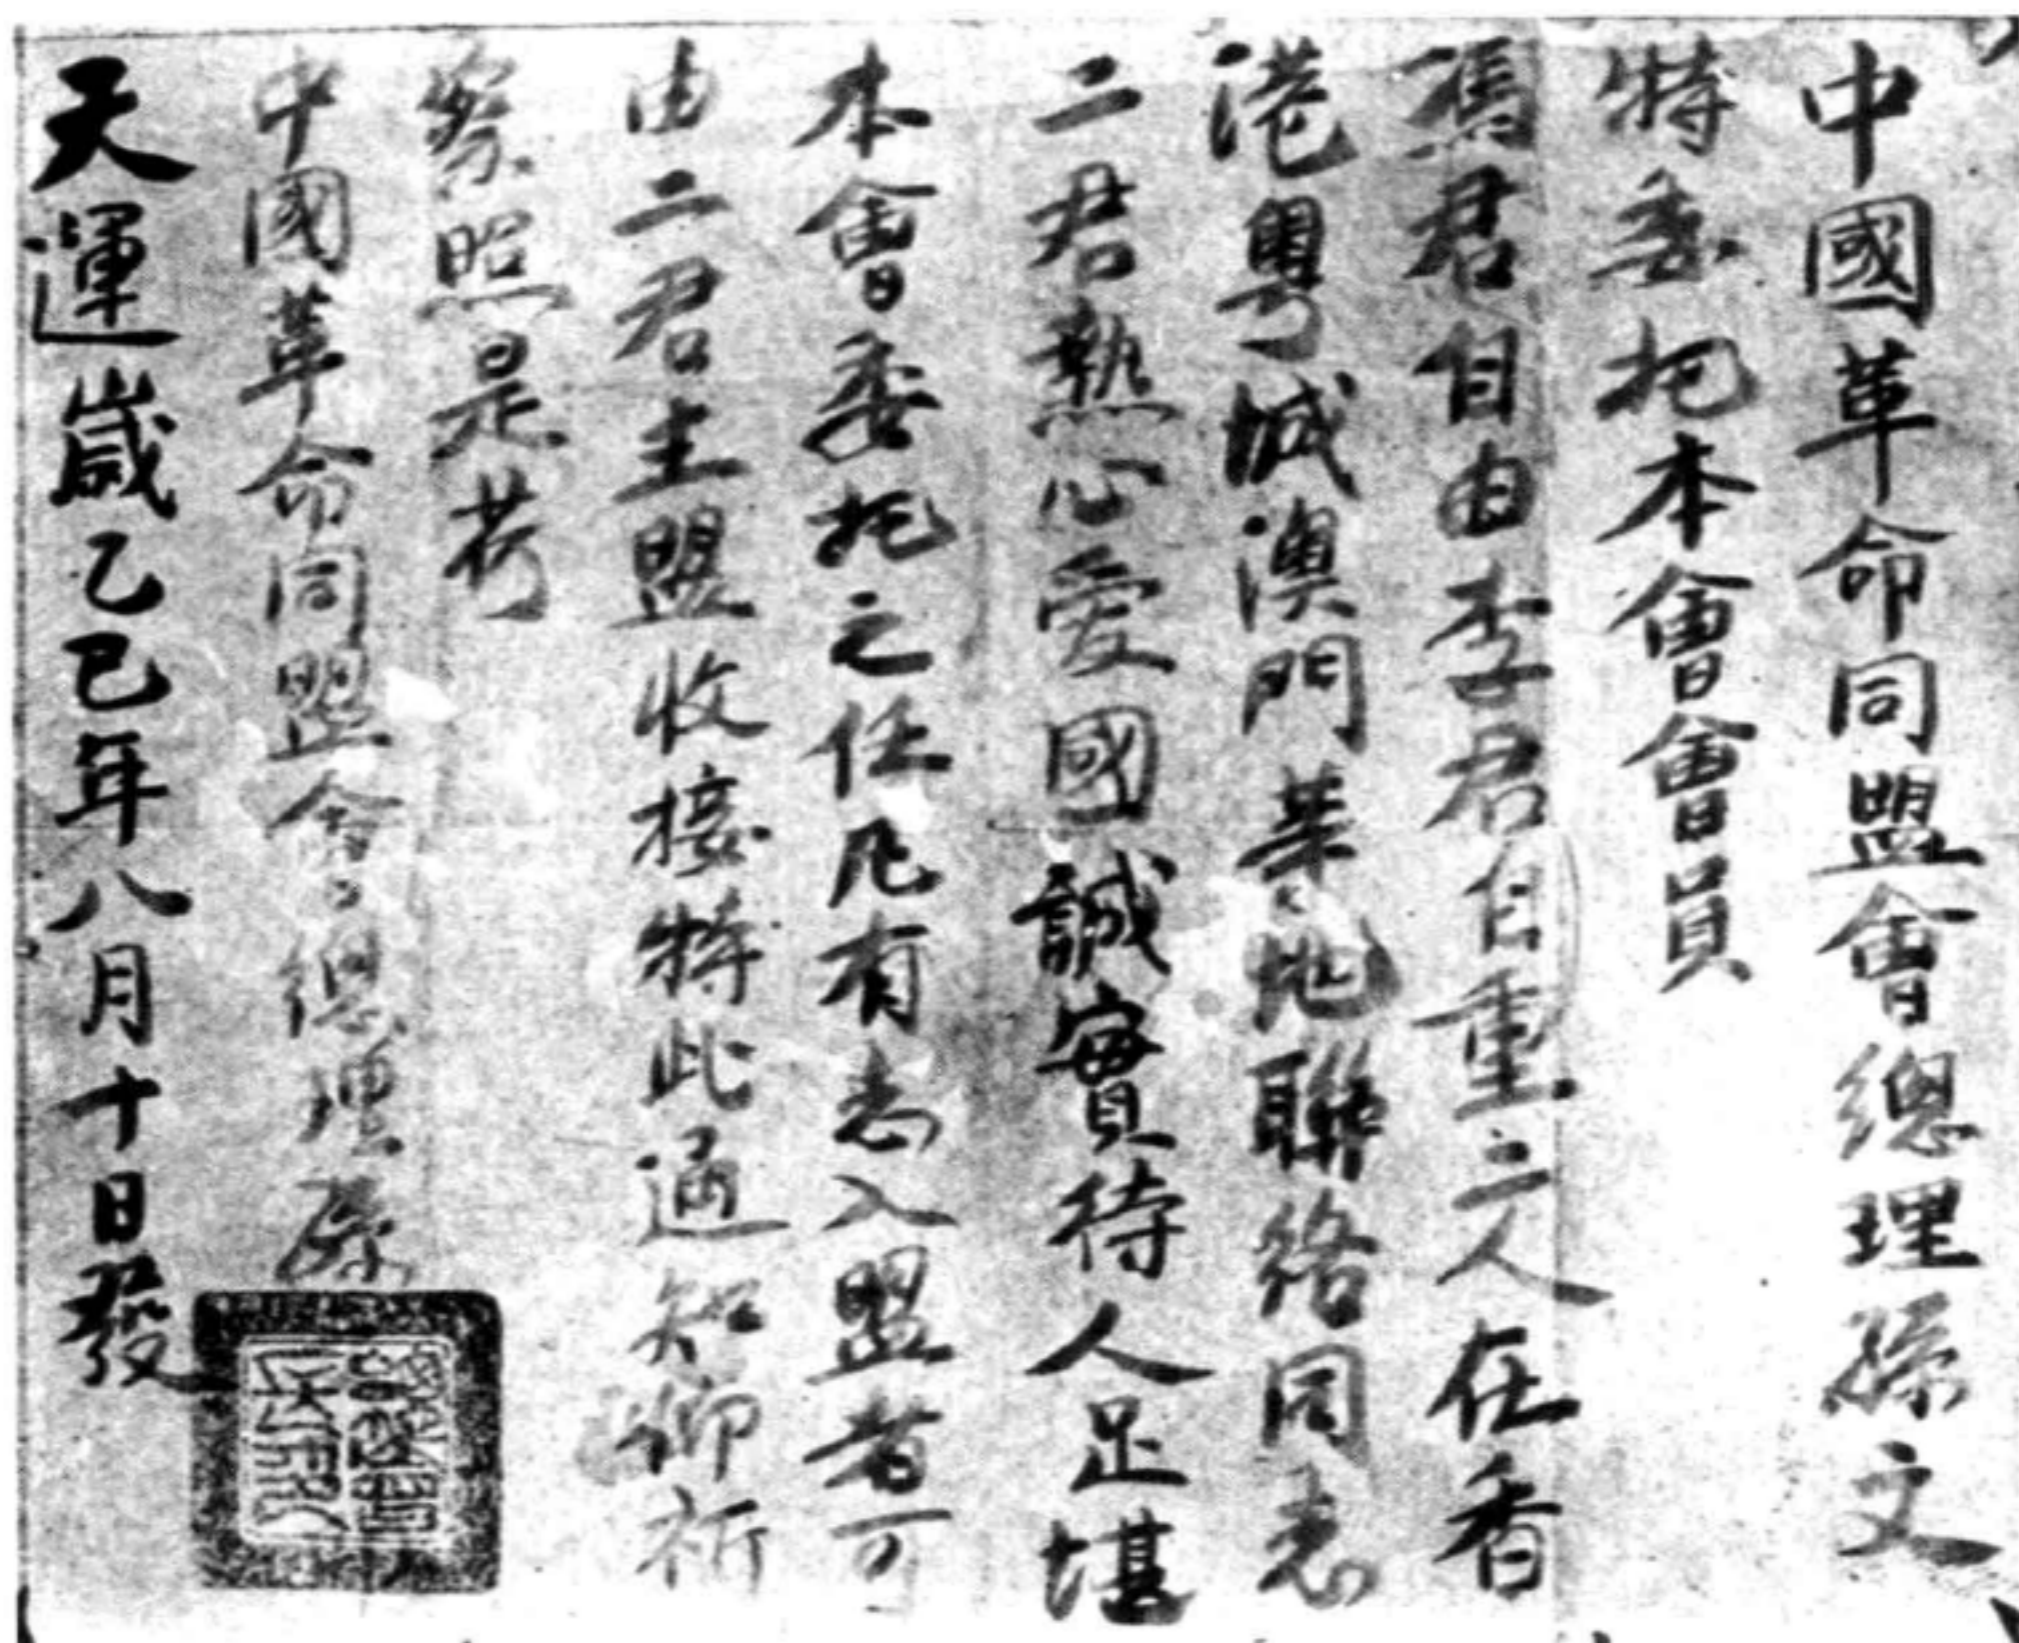 中國革命同盟會總理孫文
特委托本會會員
馮君自由李君自重二人在香
港粵城澳門等地聯絡同志
二君熱心愛國誠實待人足堪
本會委托之任凡有志入盟者可
由二君主盟收接特此通知仰祈
察照是荷
中國革命同盟會總理孫
天運歲乙巳年八月十日發